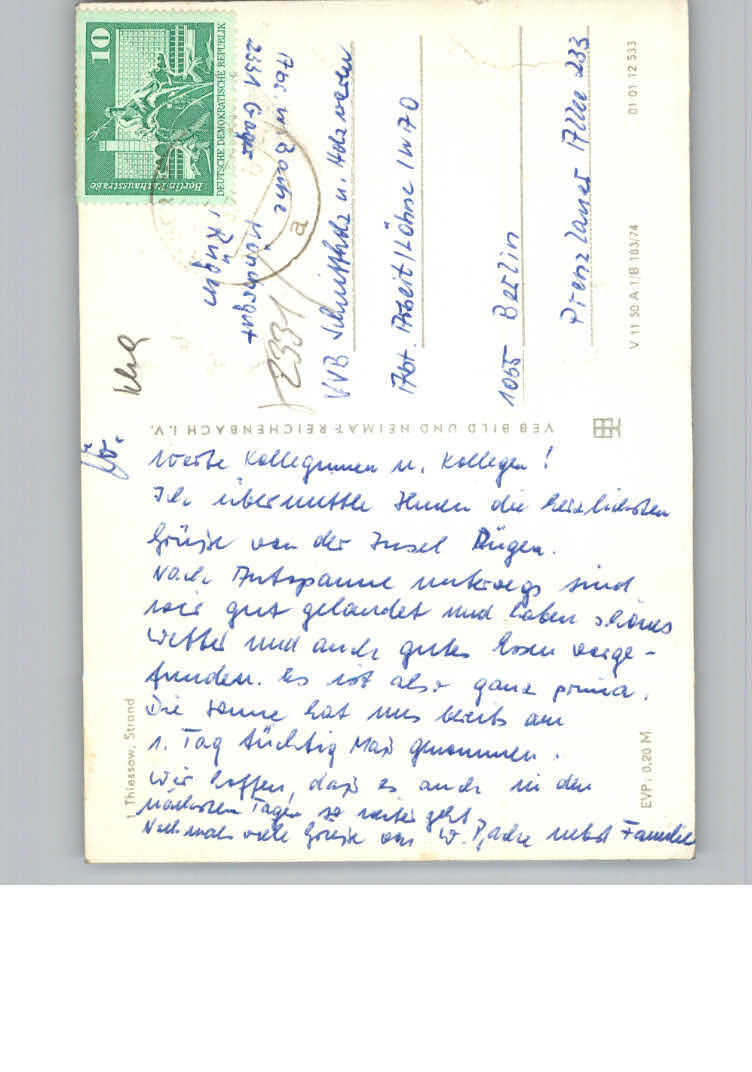 Werte Kolleginnen u. Kollegen!
Ich übermittle Ihnen die herzlichsten
Grüße von der Insel Rügen.
Nach Autopanne unterwegs sind
wir gut gelandet und haben schönes
Wetter und auch gutes Essen vorge-
funden. Es ist also ganz prima.
Die Sonne hat uns bereits am
1. Tag tüchtig Maß genommen.
Wir hoffen, daß es auch in den
nächsten Tagen so weiter geht.
Nochmals viele Grüße von W. nebst Familie
1 Thiessow, Strand
EVP: 0,20 M
VEB BILD UND HEIMAT REICHENBACH I.V.
10
DEUTSCHE DEMOKRATISCHE REPUBLIK
Berlin-Rathausstraße
Abs. W.
2331 Gager
Rügen
2331
a
VVB Schnittholz u. Holzwaren
Abt. Arbeit/Löhne
1055 Berlin
Prenzlauer Allee 233
V 11 50 A 1/B 183/74
01 01 12 533